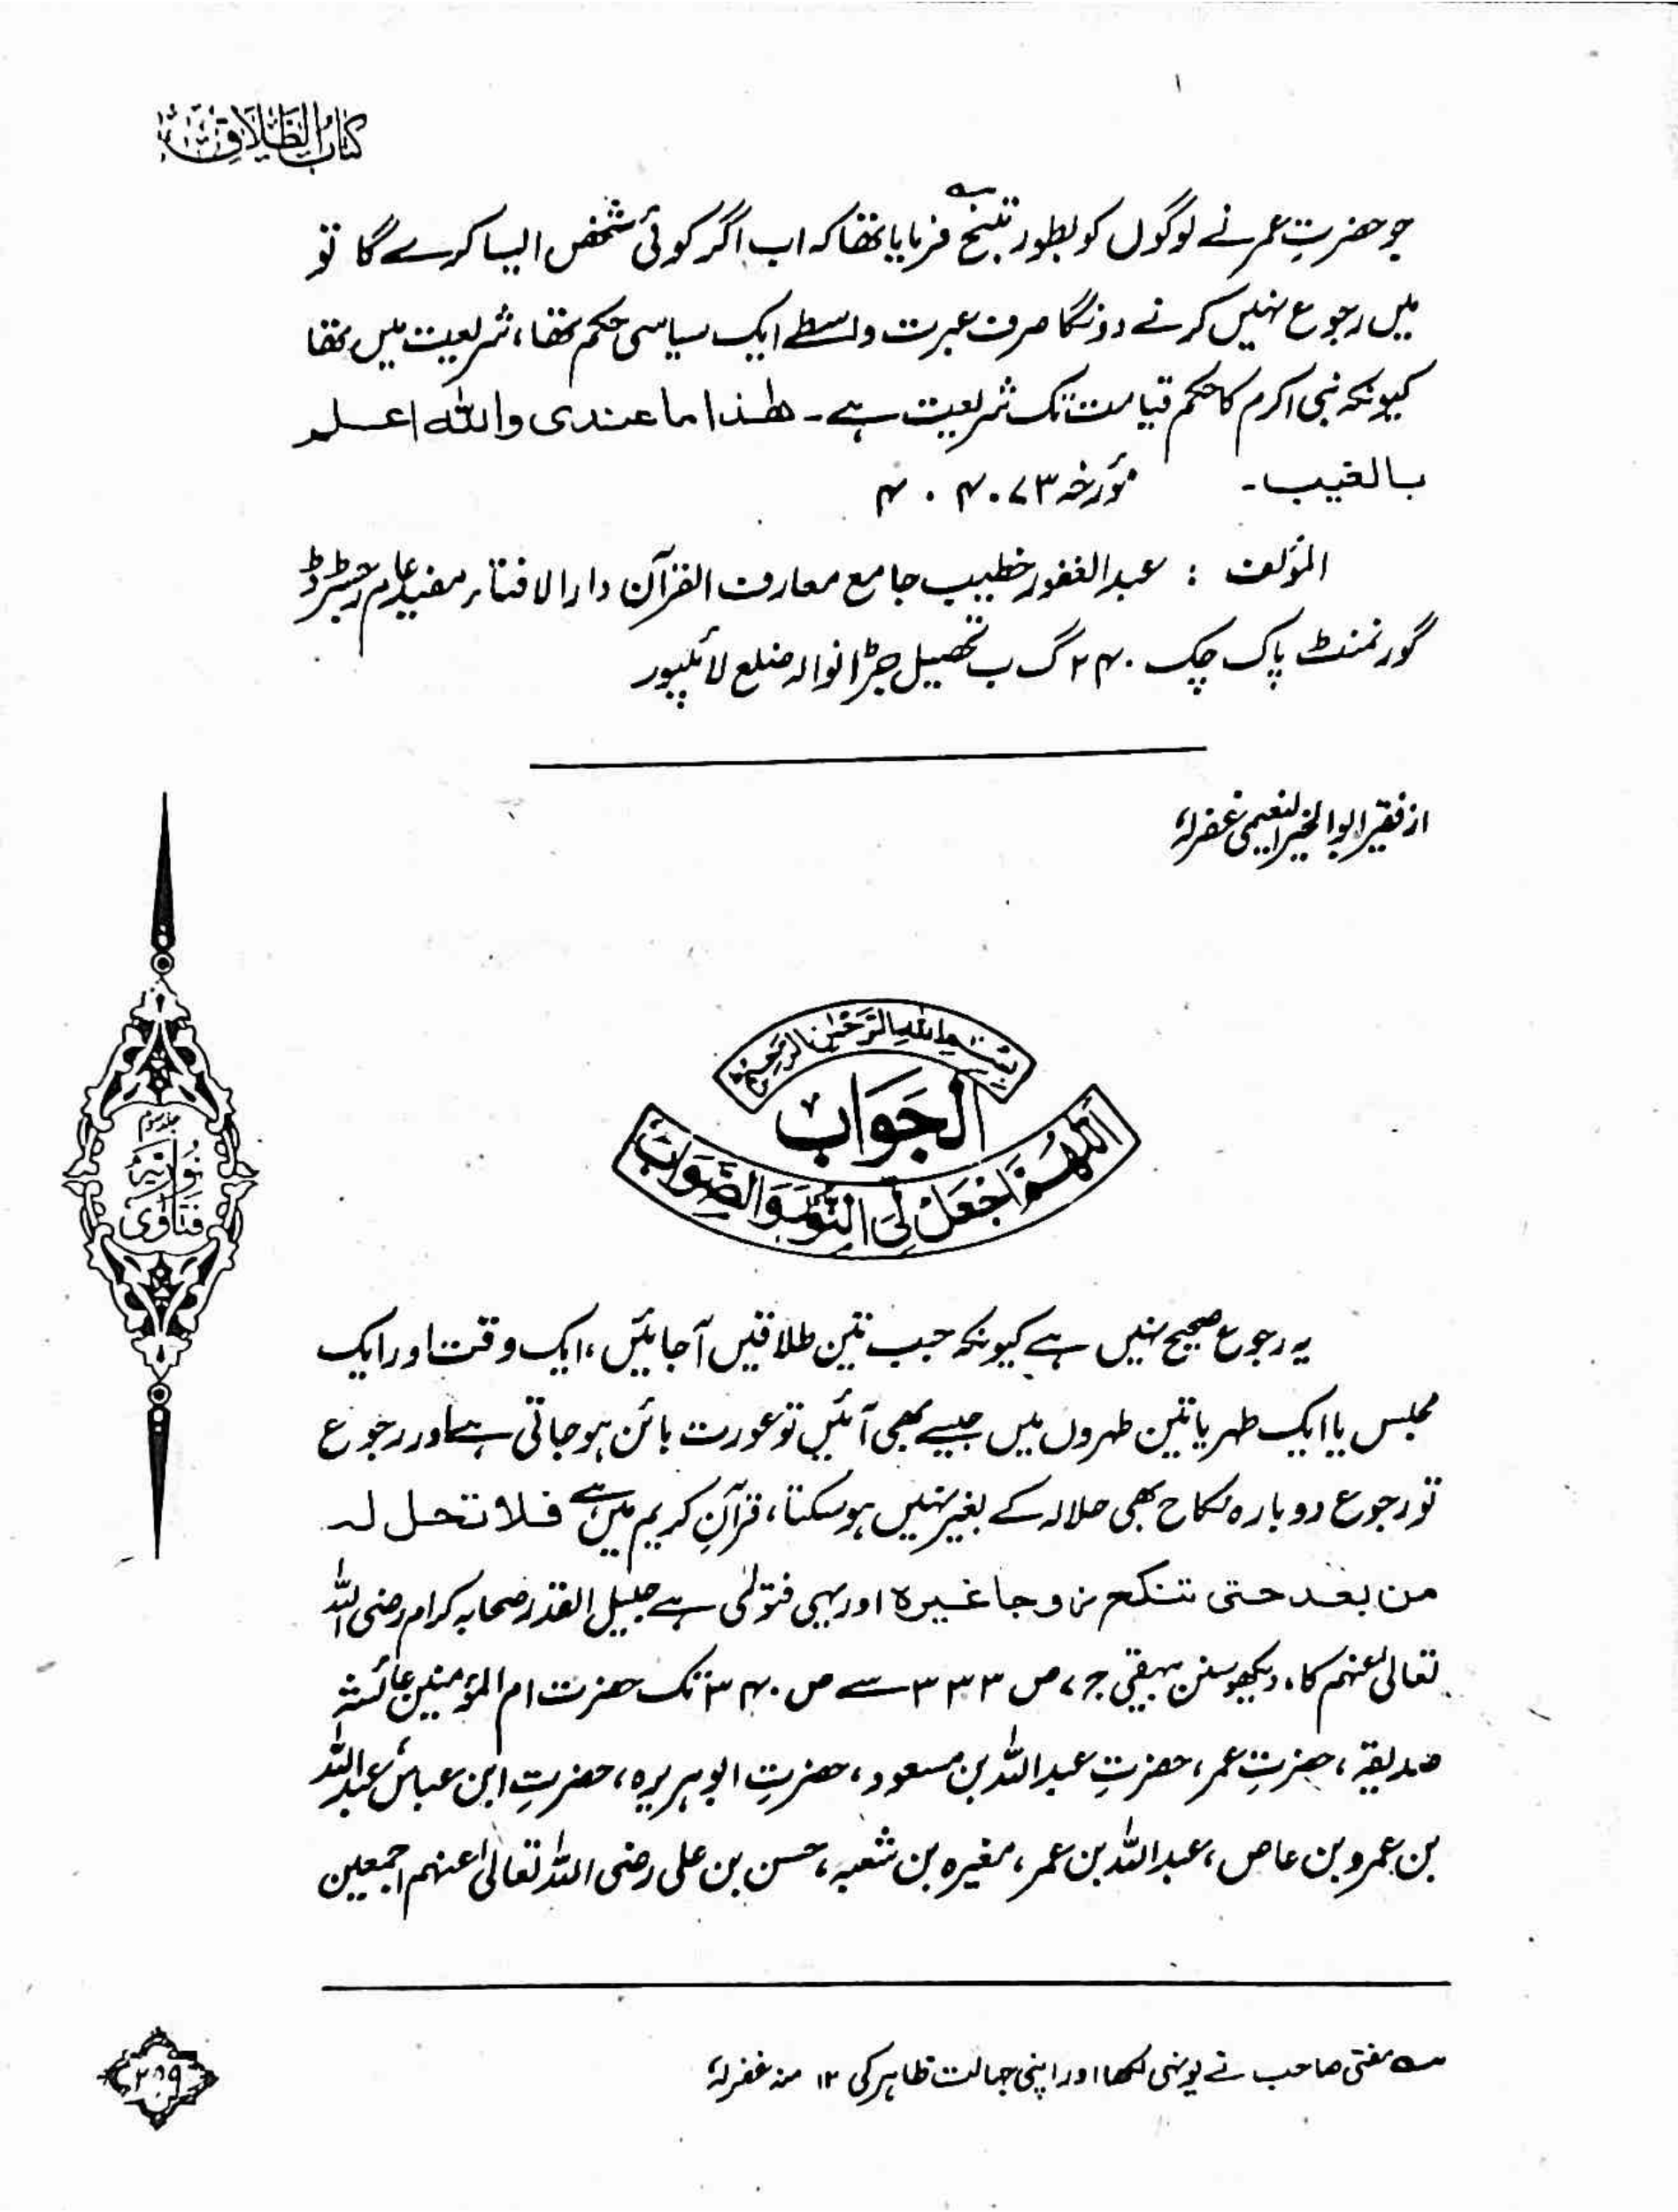 كتاب الطلاق
جو حضرتِ عمر نے لوگوں کو بطور تنبیح؎ فرمایا تھا کہ اب اگر کوئی شخص ایسا کرے گا تو
میں رجوع نہیں کرنے دونگا صرف عبرت واسطے ایک سیاسی حکم تھا، شریعت میں تھا
کیونکہ نبی اکرم کا حکم قیامت تک شریعت ہے۔ ھٰذا ما عندی واللہ اعلم
بالغیب۔ مؤرخہ ۷۳۔۴۔۴
المؤلف : عبدالغفور خطیب جامع معارف القرآن دارالافتاء مفید عام رجسٹرڈ
گورنمنٹ پاک چک ۲۴۰ گ ب تحصیل جڑانوالہ ضلع لائلپور
از فقیر ابوالخیر النعیمی غفرلہٗ
بِسْمِ اللهِ الرَّحْمٰنِ الرَّحِيْمِ
الجَوَابُ
اَللّٰهُمَّ اجْعَلْ لِيَ النُّوْرَ وَالصَّوَابَ
جلد سوم
فتاوٰی نوریہ
یہ رجوع صحیح نہیں ہے کیونکہ جب تین طلاقیں آجائیں، ایک وقت اور ایک
مجلس یا ایک طہر یا تین طہروں میں جیسے بھی آئیں تو عورت بائن ہو جاتی ہے اور رجوع
تو رجوع دوبارہ نکاح بھی حلالہ کے بغیر نہیں ہو سکتا، قرآنِ کریم میں ہے فلا تحل لہ
من بعد حتی تنکح زوجا غیرہ اور یہی فتوٰی ہے جلیل القدر صحابہ کرام رضی اللہ
تعالیٰ عنہم کا، دیکھو سنن بیہقی ج ۷ ص ۳۳۳ سے ص ۳۴۰ تک حضرت ام المؤمنین عائشہ
صدیقہ، حضرتِ عمر، حضرتِ عبداللہ بن مسعود، حضرتِ ابوہریرہ، حضرتِ ابن عباس عبداللہ
بن عمرو بن عاص، عبداللہ بن عمر، مغیرہ بن شعبہ، حسن بن علی رضی اللہ تعالیٰ عنہم اجمعین
؎ مفتی صاحب نے یونہی لکھا اور اپنی جہالت ظاہر کی ۱۲ منہ غفرلہٗ
۲۵۹